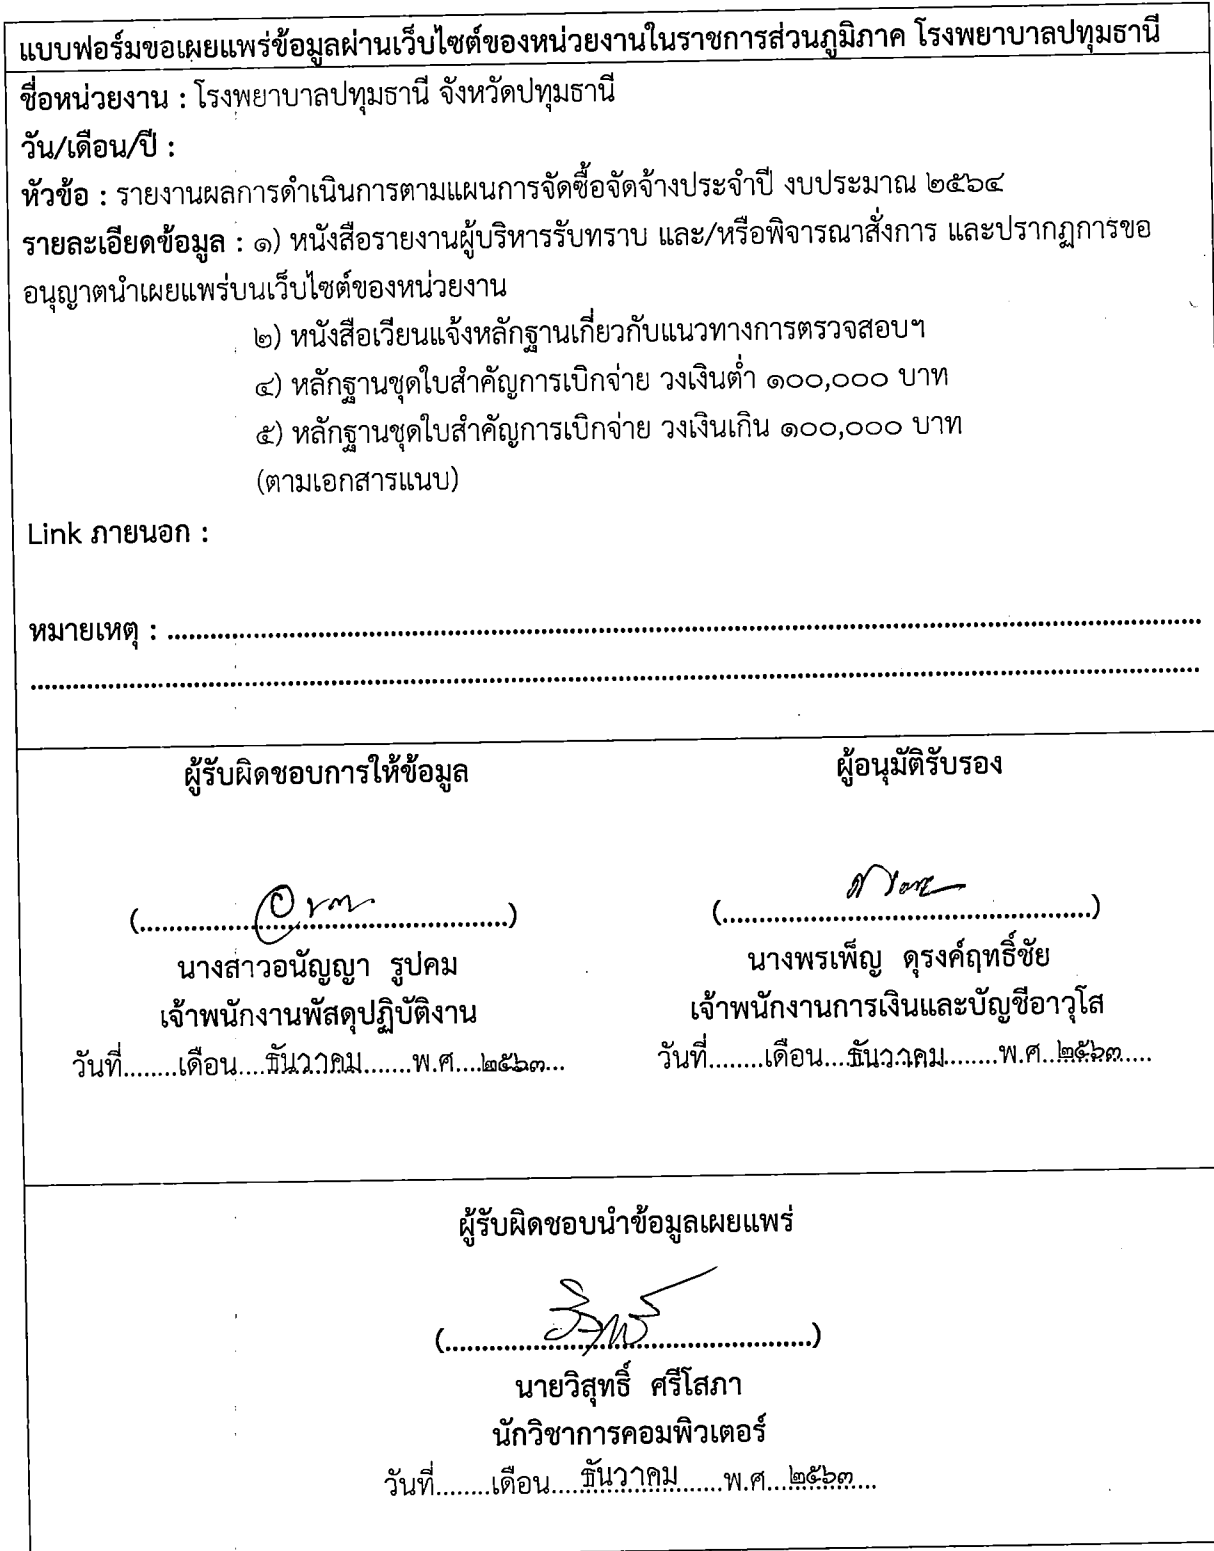 แบบฟอร์มขอเผยแพร่ข้อมูลผ่านเว็บไซต์ของหน่วยงานในราชการส่วนภูมิภาค โรงพยาบาลปทุมธานี
ชื่อหน่วยงาน : โรงพยาบาลปทุมธานี จังหวัดปทุมธานี
วัน/เดือน/ปี :
หัวข้อ : รายงานผลการดำเนินการตามแผนการจัดซื้อจัดจ้างประจำปี งบประมาณ ๒๕๖๔
รายละเอียดข้อมูล : ๑) หนังสือรายงานผู้บริหารรับทราบ และ/หรือพิจารณาสั่งการ และปรากฏการขอ
อนุญาตนำเผยแพร่บนเว็บไซต์ของหน่วยงาน
๒) หนังสือเวียนแจ้งหลักฐานเกี่ยวกับแนวทางการตรวจสอบฯ
๔) หลักฐานชุดใบสำคัญการเบิกจ่าย วงเงินต่ำ ๑๐๐,๐๐๐ บาท
๕) หลักฐานชุดใบสำคัญการเบิกจ่าย วงเงินเกิน ๑๐๐,๐๐๐ บาท
(ตามเอกสารแนบ)
Link ภายนอก :
หมายเหตุ : ................................................................
................................................................
ผู้รับผิดชอบการให้ข้อมูล ผู้อนุมัติรับรอง
(................................................) (................................................)
นางสาวอนัญญา รูปคม นางพรเพ็ญ ดุรงค์ฤทธิ์ชัย
เจ้าพนักงานพัสดุปฏิบัติงาน เจ้าพนักงานการเงินและบัญชีอาวุโส
วันที่........เดือน....ธันวาคม.......พ.ศ....๒๕๖๓... วันที่........เดือน....ธันวาคม........พ.ศ...๒๕๖๓.....
ผู้รับผิดชอบนำข้อมูลเผยแพร่
(................................................)
นายวิสุทธิ์ ศรีโสภา
นักวิชาการคอมพิวเตอร์
วันที่........เดือน.....ธันวาคม.......พ.ศ....๒๕๖๓...